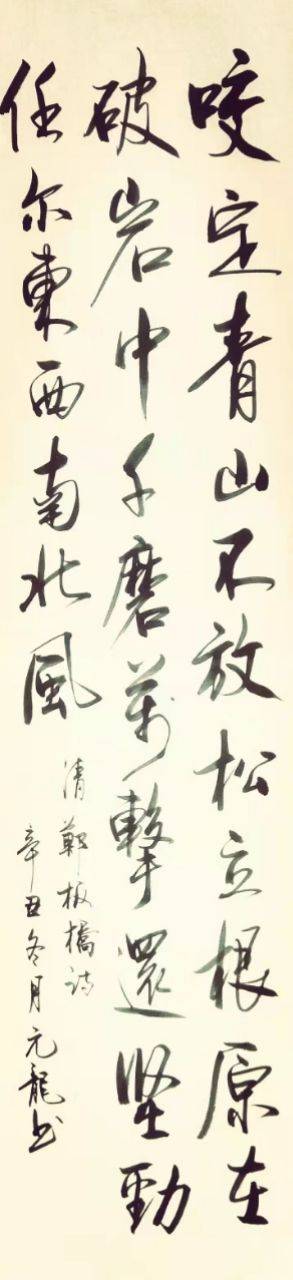 咬定青山不放松立根原在
破岩中千磨萬擊還坚勁
任尔東西南北風
清鄭板橋诗
辛丑冬月元龍书